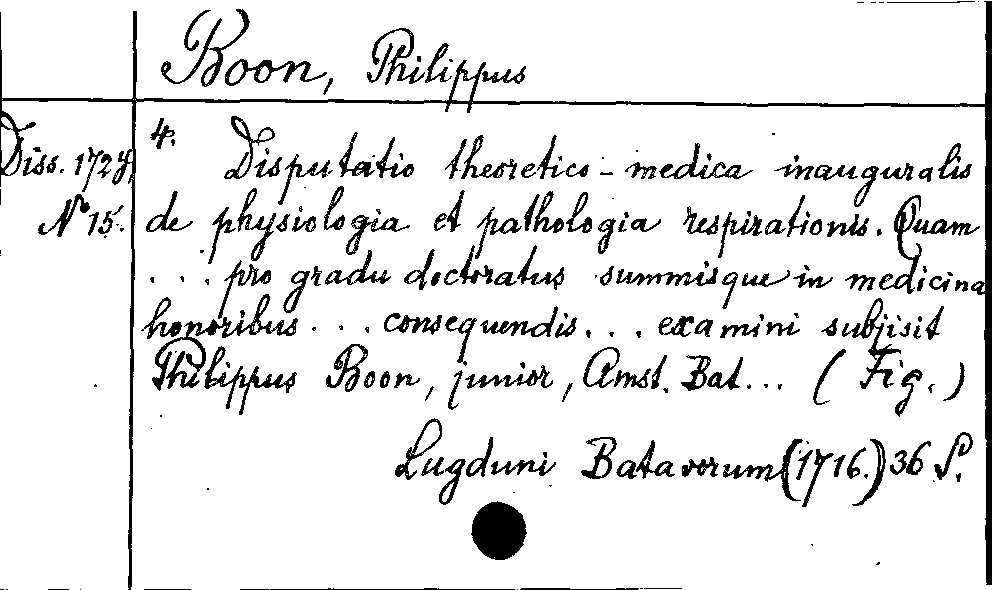 Boon, Philippus
Diss. 1728,
N° 15.
4. Disputatio theoretico-medica inauguralis
de physiologia et pathologia respirationis. Quam
... pro gradu doctoratus summisque in medicina
honoribus ... consequendis... examini subjisit
Philippus Boon, junior, Amst. Bat... (Fig.)
Lugduni Batavorum (1716.) 36 S.